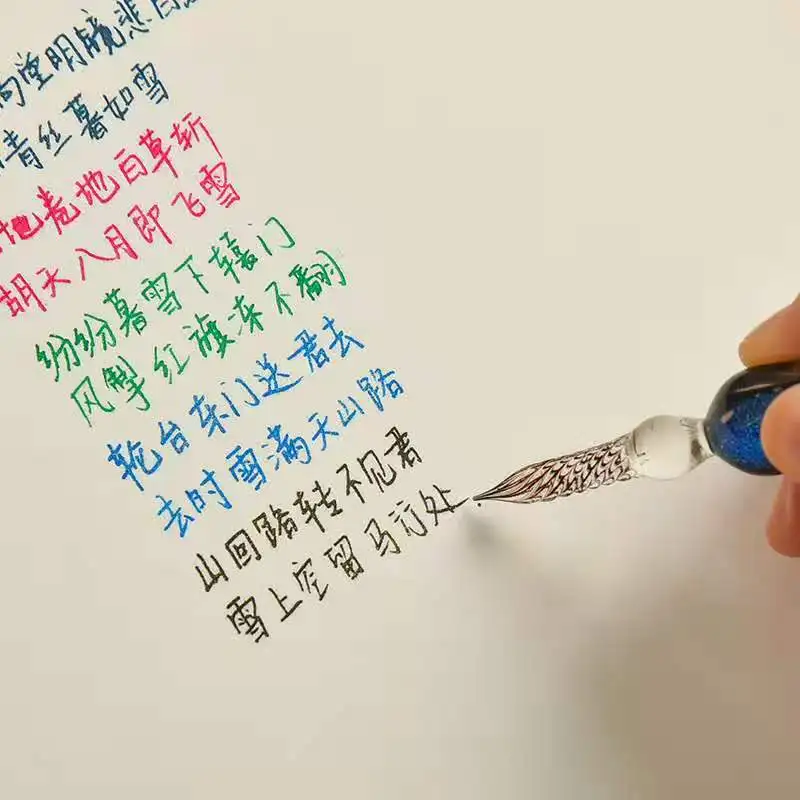 堂明镜悲白
青丝暮如雪
地卷地白草斩
胡天八月即飞雪
纷纷暮雪下辕门
风掣红旗冻不翻
轮台东门送君去
去时雪满天山路
山回路转不见君
雪上空留马行处.